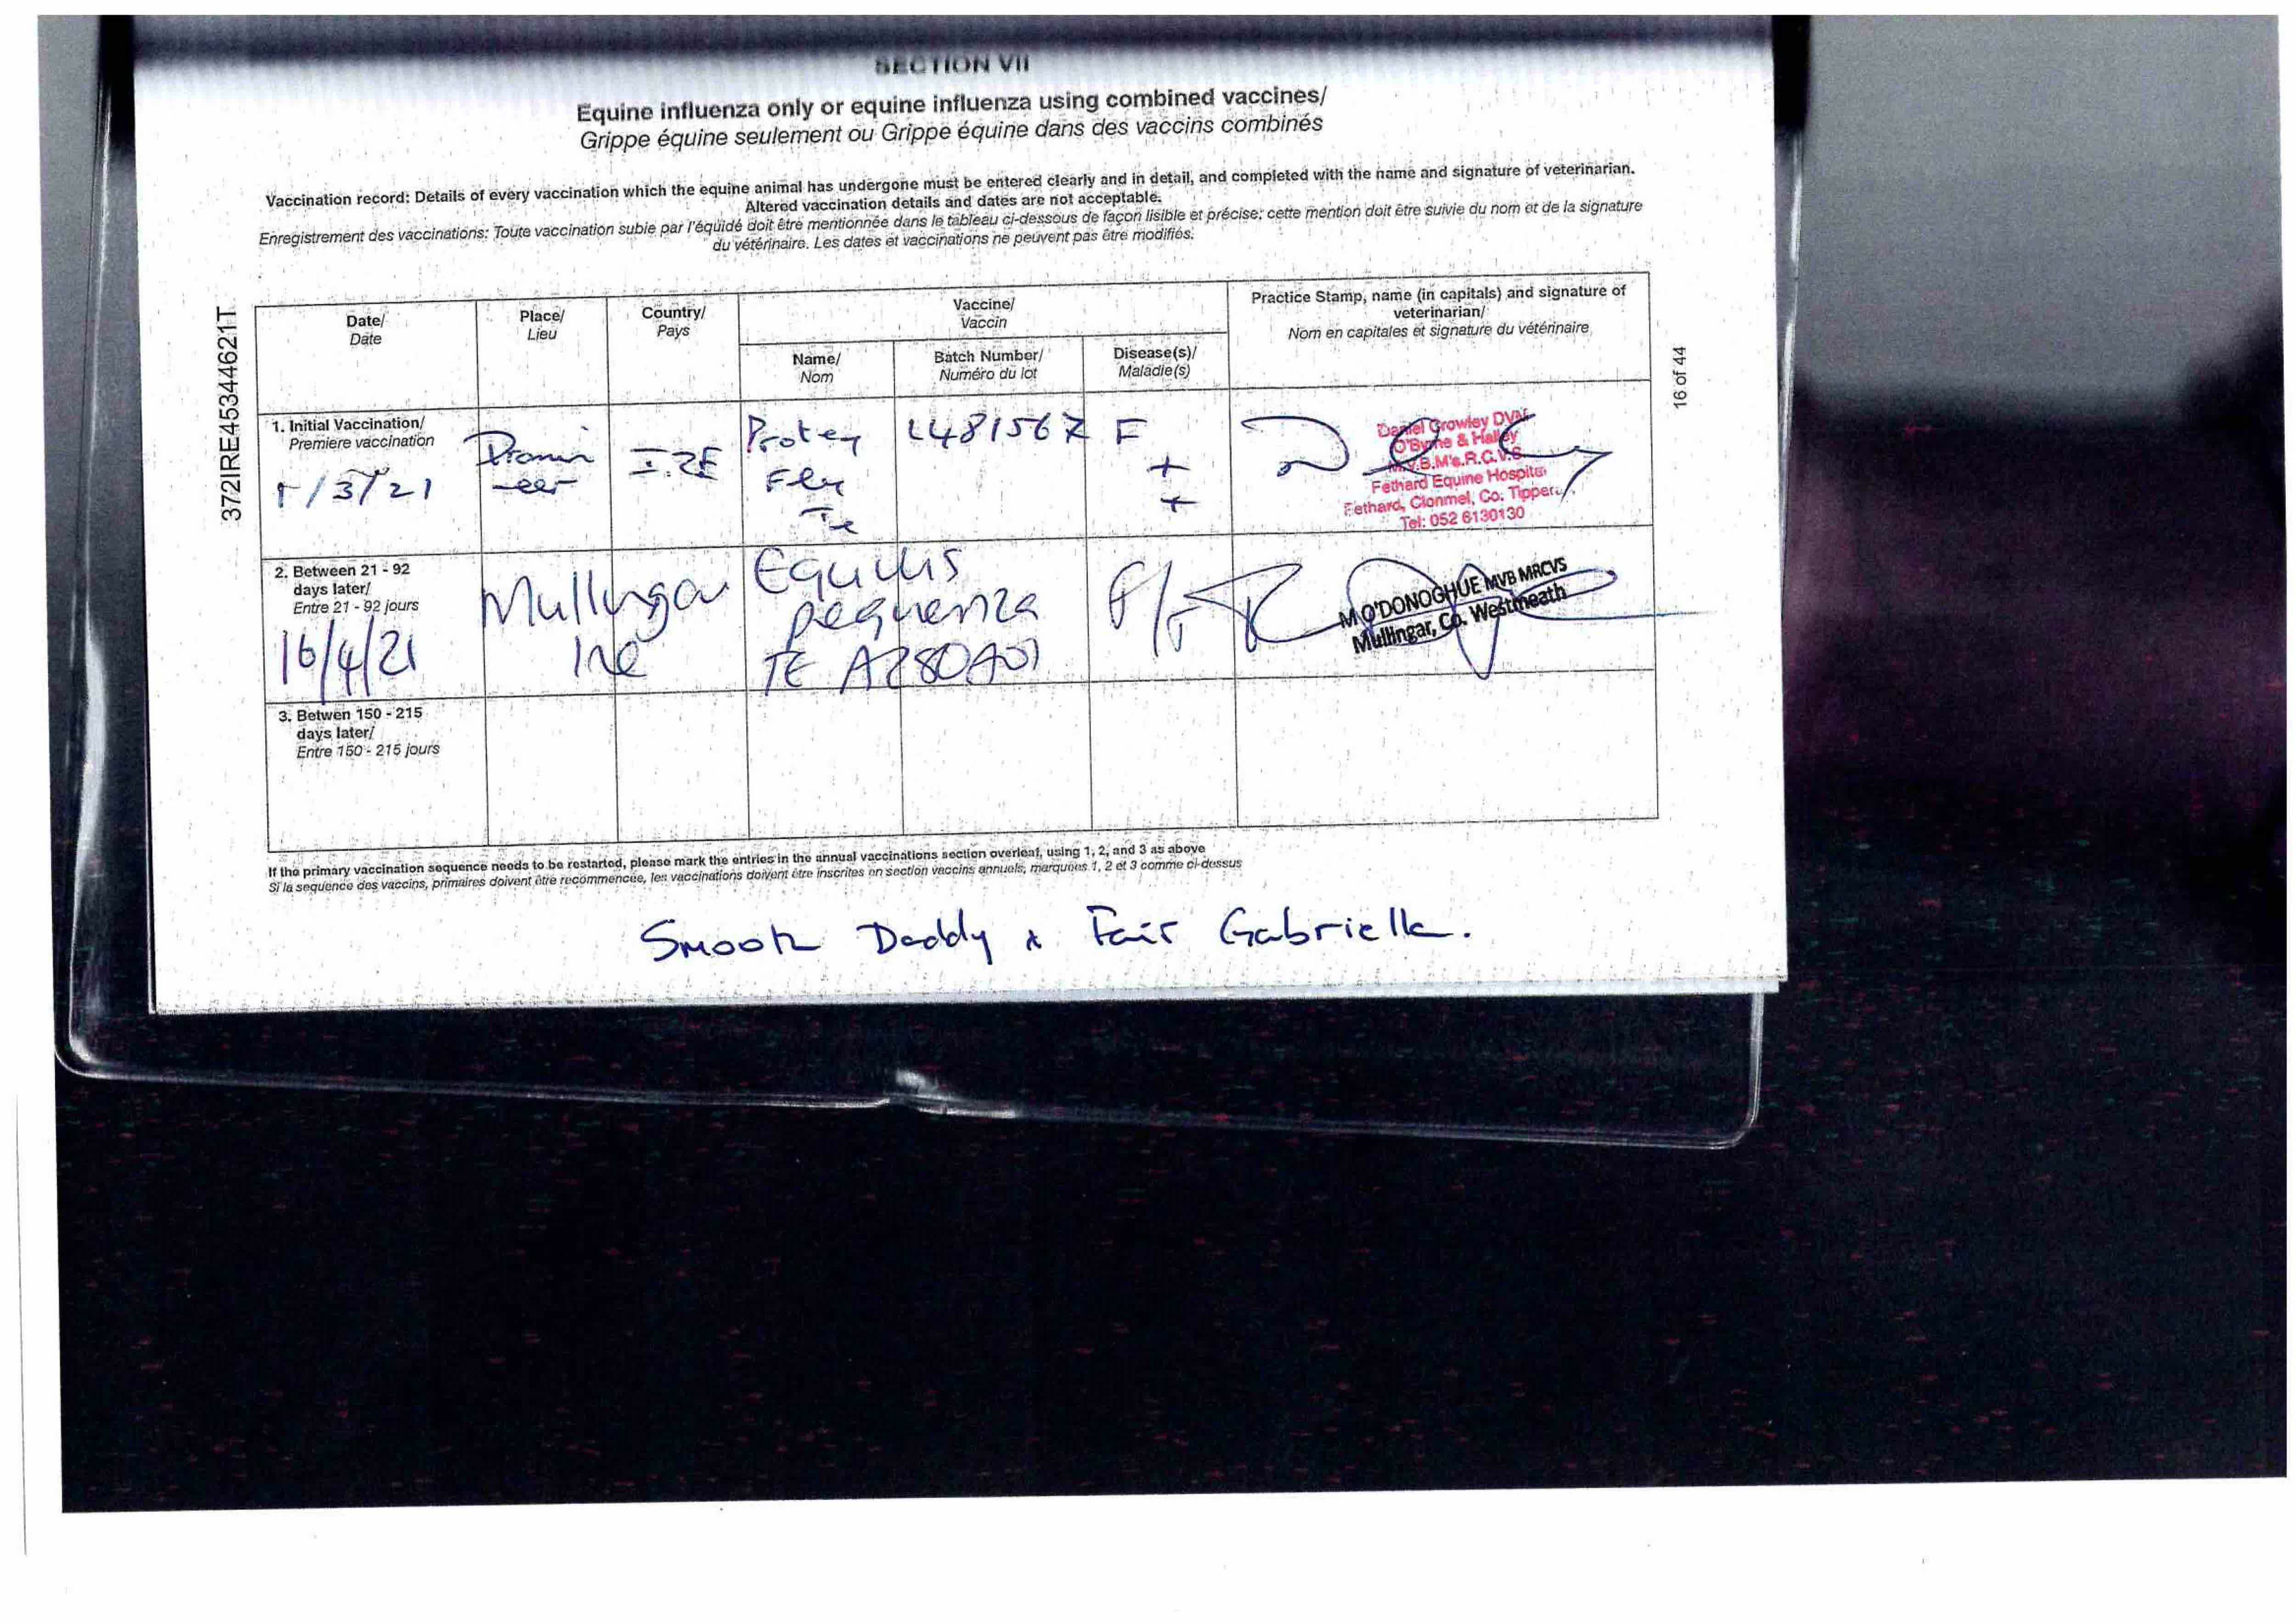 SECTION VII
Equine influenza only or equine influenza using combined vaccines/
Grippe équine seulement ou Grippe équine dans des vaccins combinés
Vaccination record: Details of every vaccination which the equine animal has undergone must be entered clearly and in detail, and completed with the name and signature of veterinarian.
Altered vaccination details and dates are not acceptable.
Enregistrement des vaccinations: Toute vaccination subie par l'équidé doit être mentionnée dans le tableau ci-dessous de façon lisible et précise; cette mention doit être suivie du nom et de la signature
du vétérinaire. Les dates et vaccinations ne peuvent pas être modifiés.
372IRE45344621T
16 of 44
Date/
Date
Place/
Lieu
Country/
Pays
Vaccine/
Vaccin
Name/
Nom
Batch Number/
Numéro du lot
Disease(s)/
Maladie(s)
Practice Stamp, name (in capitals) and signature of
veterinarian/
Nom en capitales et signature du vétérinaire
1. Initial Vaccination/
Premiere vaccination
/3/21
IRE
F
+
Daniel Crowley DVM
O'Byrne & Halley
M.V.B.M's.R.C.V.S
Fethard Equine Hospital
Fethard, Clonmel, Co. Tipperary
Tel: 052 6130130
2. Between 21 - 92
days later/
Entre 21 - 92 jours
16/4/21
Mullingar
Ire
Equilis
prequenza
TE A280A01
F/T
M O'DONOGHUE MVB MRCVS
Mullingar, Co. Westmeath
3. Betwen 150 - 215
days later/
Entre 150 - 215 jours
If the primary vaccination sequence needs to be restarted, please mark the entries in the annual vaccinations section overleaf, using 1, 2, and 3 as above
Si la sequence des vaccins, primaires doivent être recommencée, les vaccinations doivent être inscrites en section vaccins annuels, marquons 1, 2 et 3 comme ci-dessus
Smooth Daddy x Fair Gabrielle.